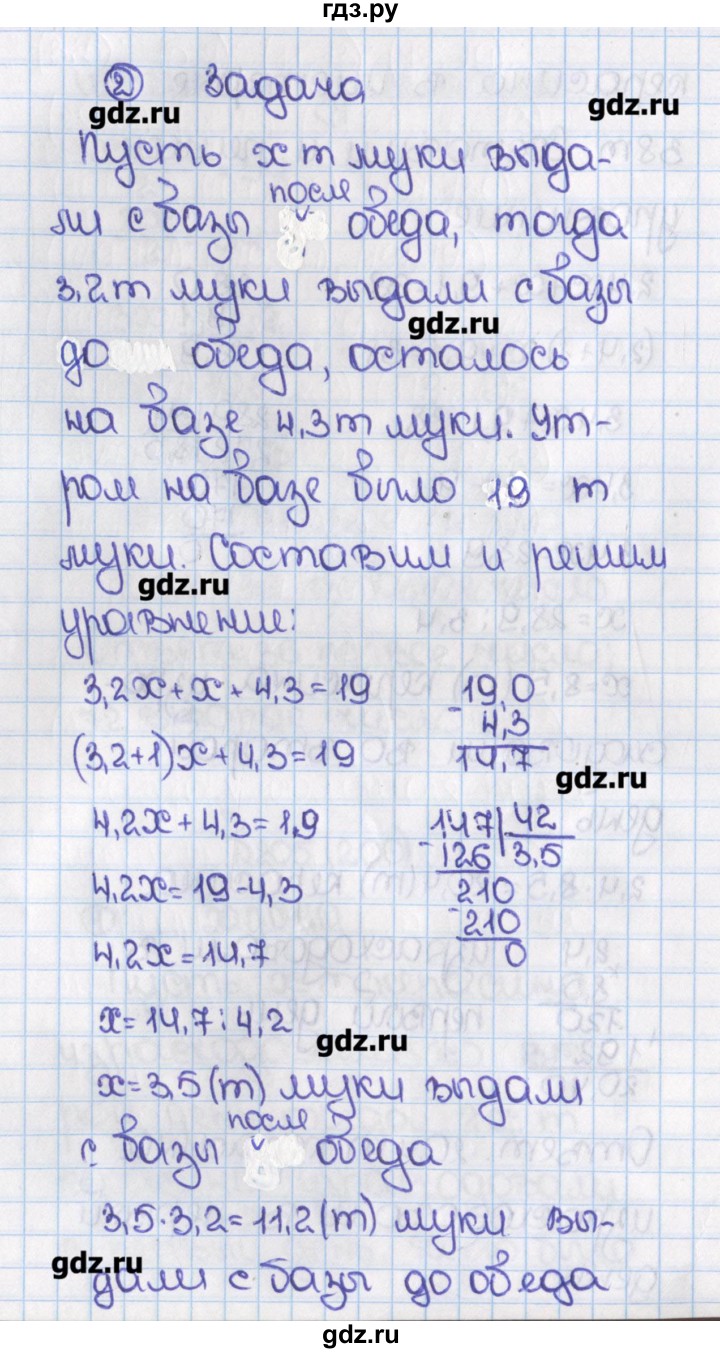 гдз.ру
② Задача
gdz.ru
gdz.ru
Пусть х т муки выда-
после
ли с базы обеда, тогда
3,2 т муки выдали с базы
gdz.ru
до обеда, осталось
на базе 4,3 т муки. Ут-
ром на базе было 19 т
муки. Составим и решим
gdz.ru
уравнение:
3,2х + х + 4,3 = 19
(3,2+1)х + 4,3 = 19
4,2х + 4,3 = 1,9
4,2х = 19 - 4,3
4,2х = 14,7
х = 14,7 : 4,2
19,0
- 4,3
14,7
gdz.ru
147 | 42
- 126 | 3,5
210
- 210
0
gdz.ru
х = 3,5 (т) муки выдали
после
с базы обеда
3,5 · 3,2 = 11,2 (т) муки вы-
gdz.ru
дали с базы до обеда
gdz.ru